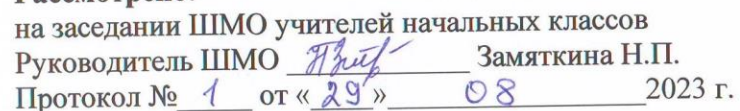 на заседании ШМО учителей начальных классов
Руководитель ШМО Замяткина Н.П.
Протокол № 1 от « 29 » 08 2023 г.